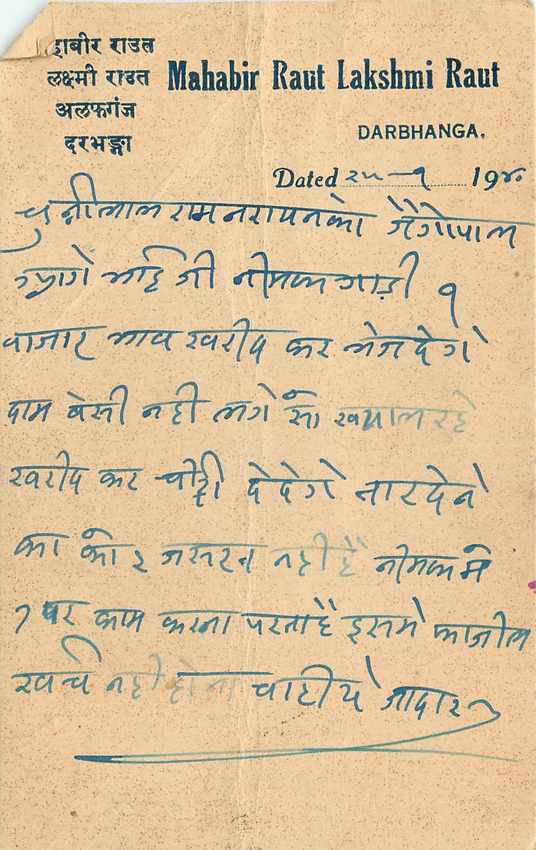 हावीर राउत
लक्ष्मी राउत
अलफगंज
दरभङ्गा
Mahabir Raut Lakshmi Raut
DARBHANGA.
Dated २५ - १ 19४०
चुन्नीलाल रामनरायनको जैगोपाल
आगे भाई जी नीमक गाड़ी १
बाजार भाव खरीद कर भेज देगें
दाम बेसी नही लगे सो ख्याल रहे
खरीद कर चीठ्ठी दे देगें तार देने
का कोइ जरुरत नही हैं नीमक मे
पर काम करना परता हैं इसमे फाजील
खर्च नही होना चाहीये जादा